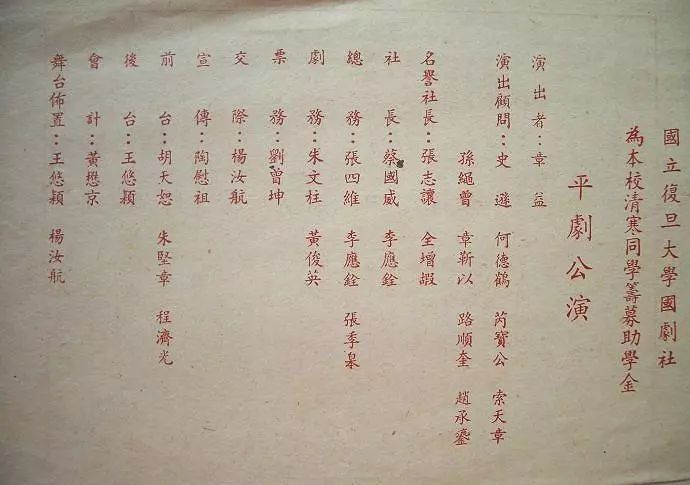 國立復旦大學國劇社
為本校清寒同學籌募助學金
平劇公演
演出者：章益
演出顧問：史遜 何德鶴 芮寶公 索天章
孫繩曾 章靳以 路順奎 趙承鎏
名譽社長：張志讓 全增嘏
社長：蔡國威 李應銓
總務：張四維 李應銓 張季皋
劇務：朱文柱 黃俊英
票務：劉曾坤
交際：楊汝航
宣傳：陶慰祖
前台：胡天恕 朱堅章 程濟光
後台：王悠穎
會計：黃懋京
舞台佈置：王悠穎 楊汝航